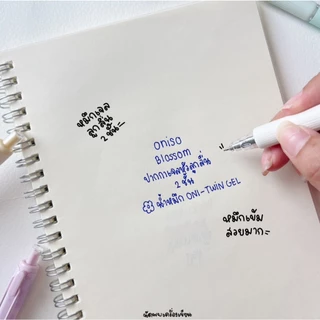 หมึกเจล
ลูกลื่น
2 ชั้น
oniso
Blossom
ปากกาเจลหัวลูกลื่น
2 ชั้น
น้ำหมึก ONI-TWIN GEL
หมึกเข้ม
สวยมาก